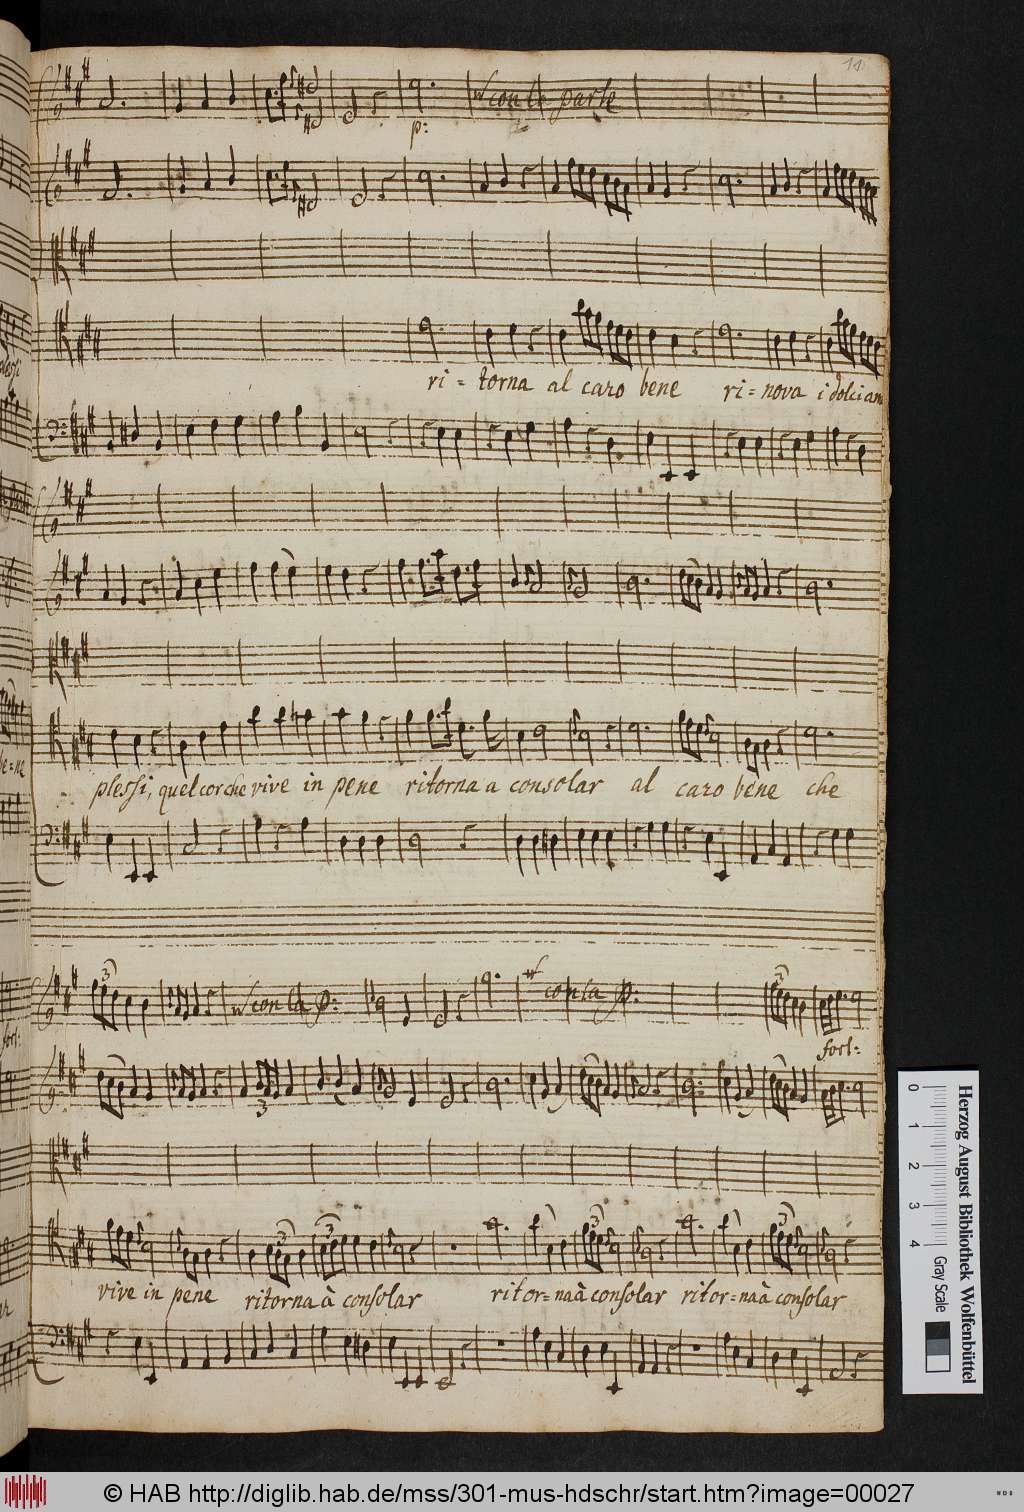 11
con la parte
p:
ri = torna al caro bene ri = nova i dolci am
plessi, quel cor che vive in pene ritorna a consolar al caro bene che
con la p: con la p:
3 3
forl:
3 3
3 3 3 3
vive in pene ritorna à consolar ritor=na à consolar ritor=na à consolar
Herzog August Bibliothek Wolfenbüttel
0 1 2 3 4
Gray Scale
© HAB http://diglib.hab.de/mss/301-mus-hdschr/start.htm?image=00027